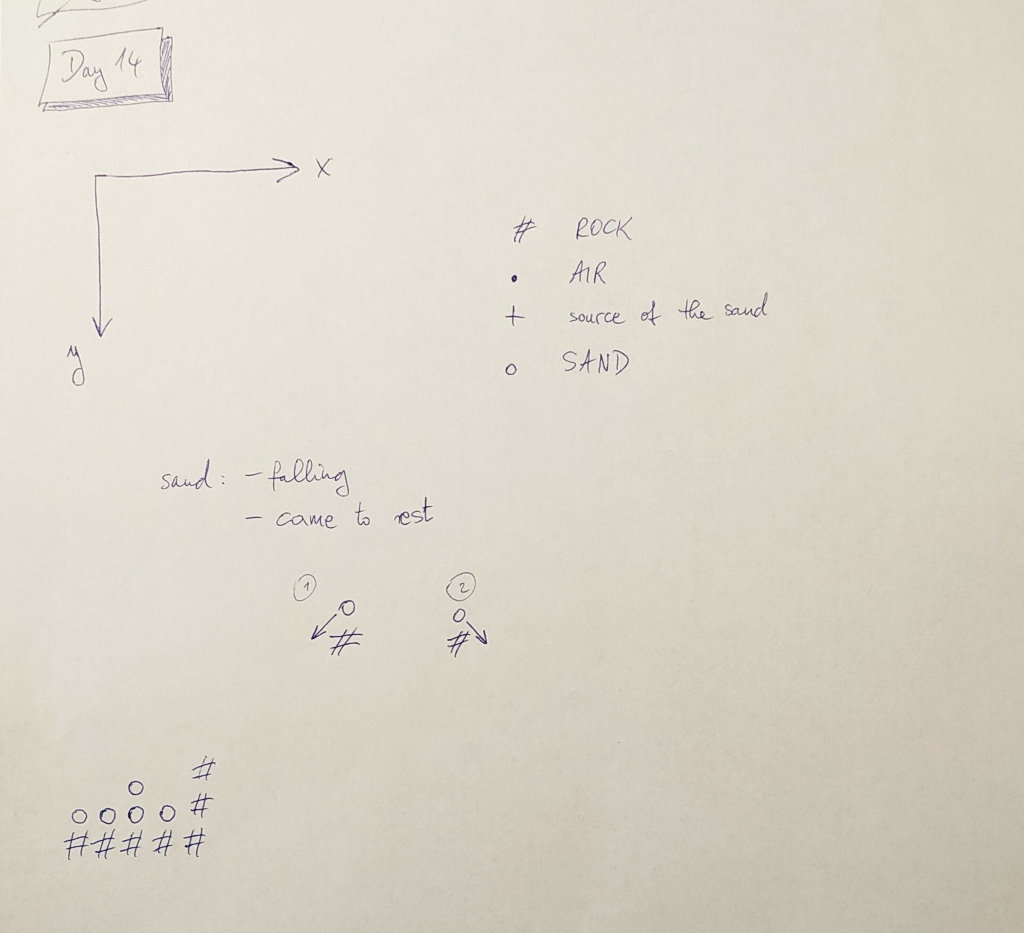 Day 14
x
y
# ROCK
• AIR
+ source of the sand
o SAND
sand: - falling
- came to rest
1 2
o o
# #
#
o #
o o o o #
# # # # #